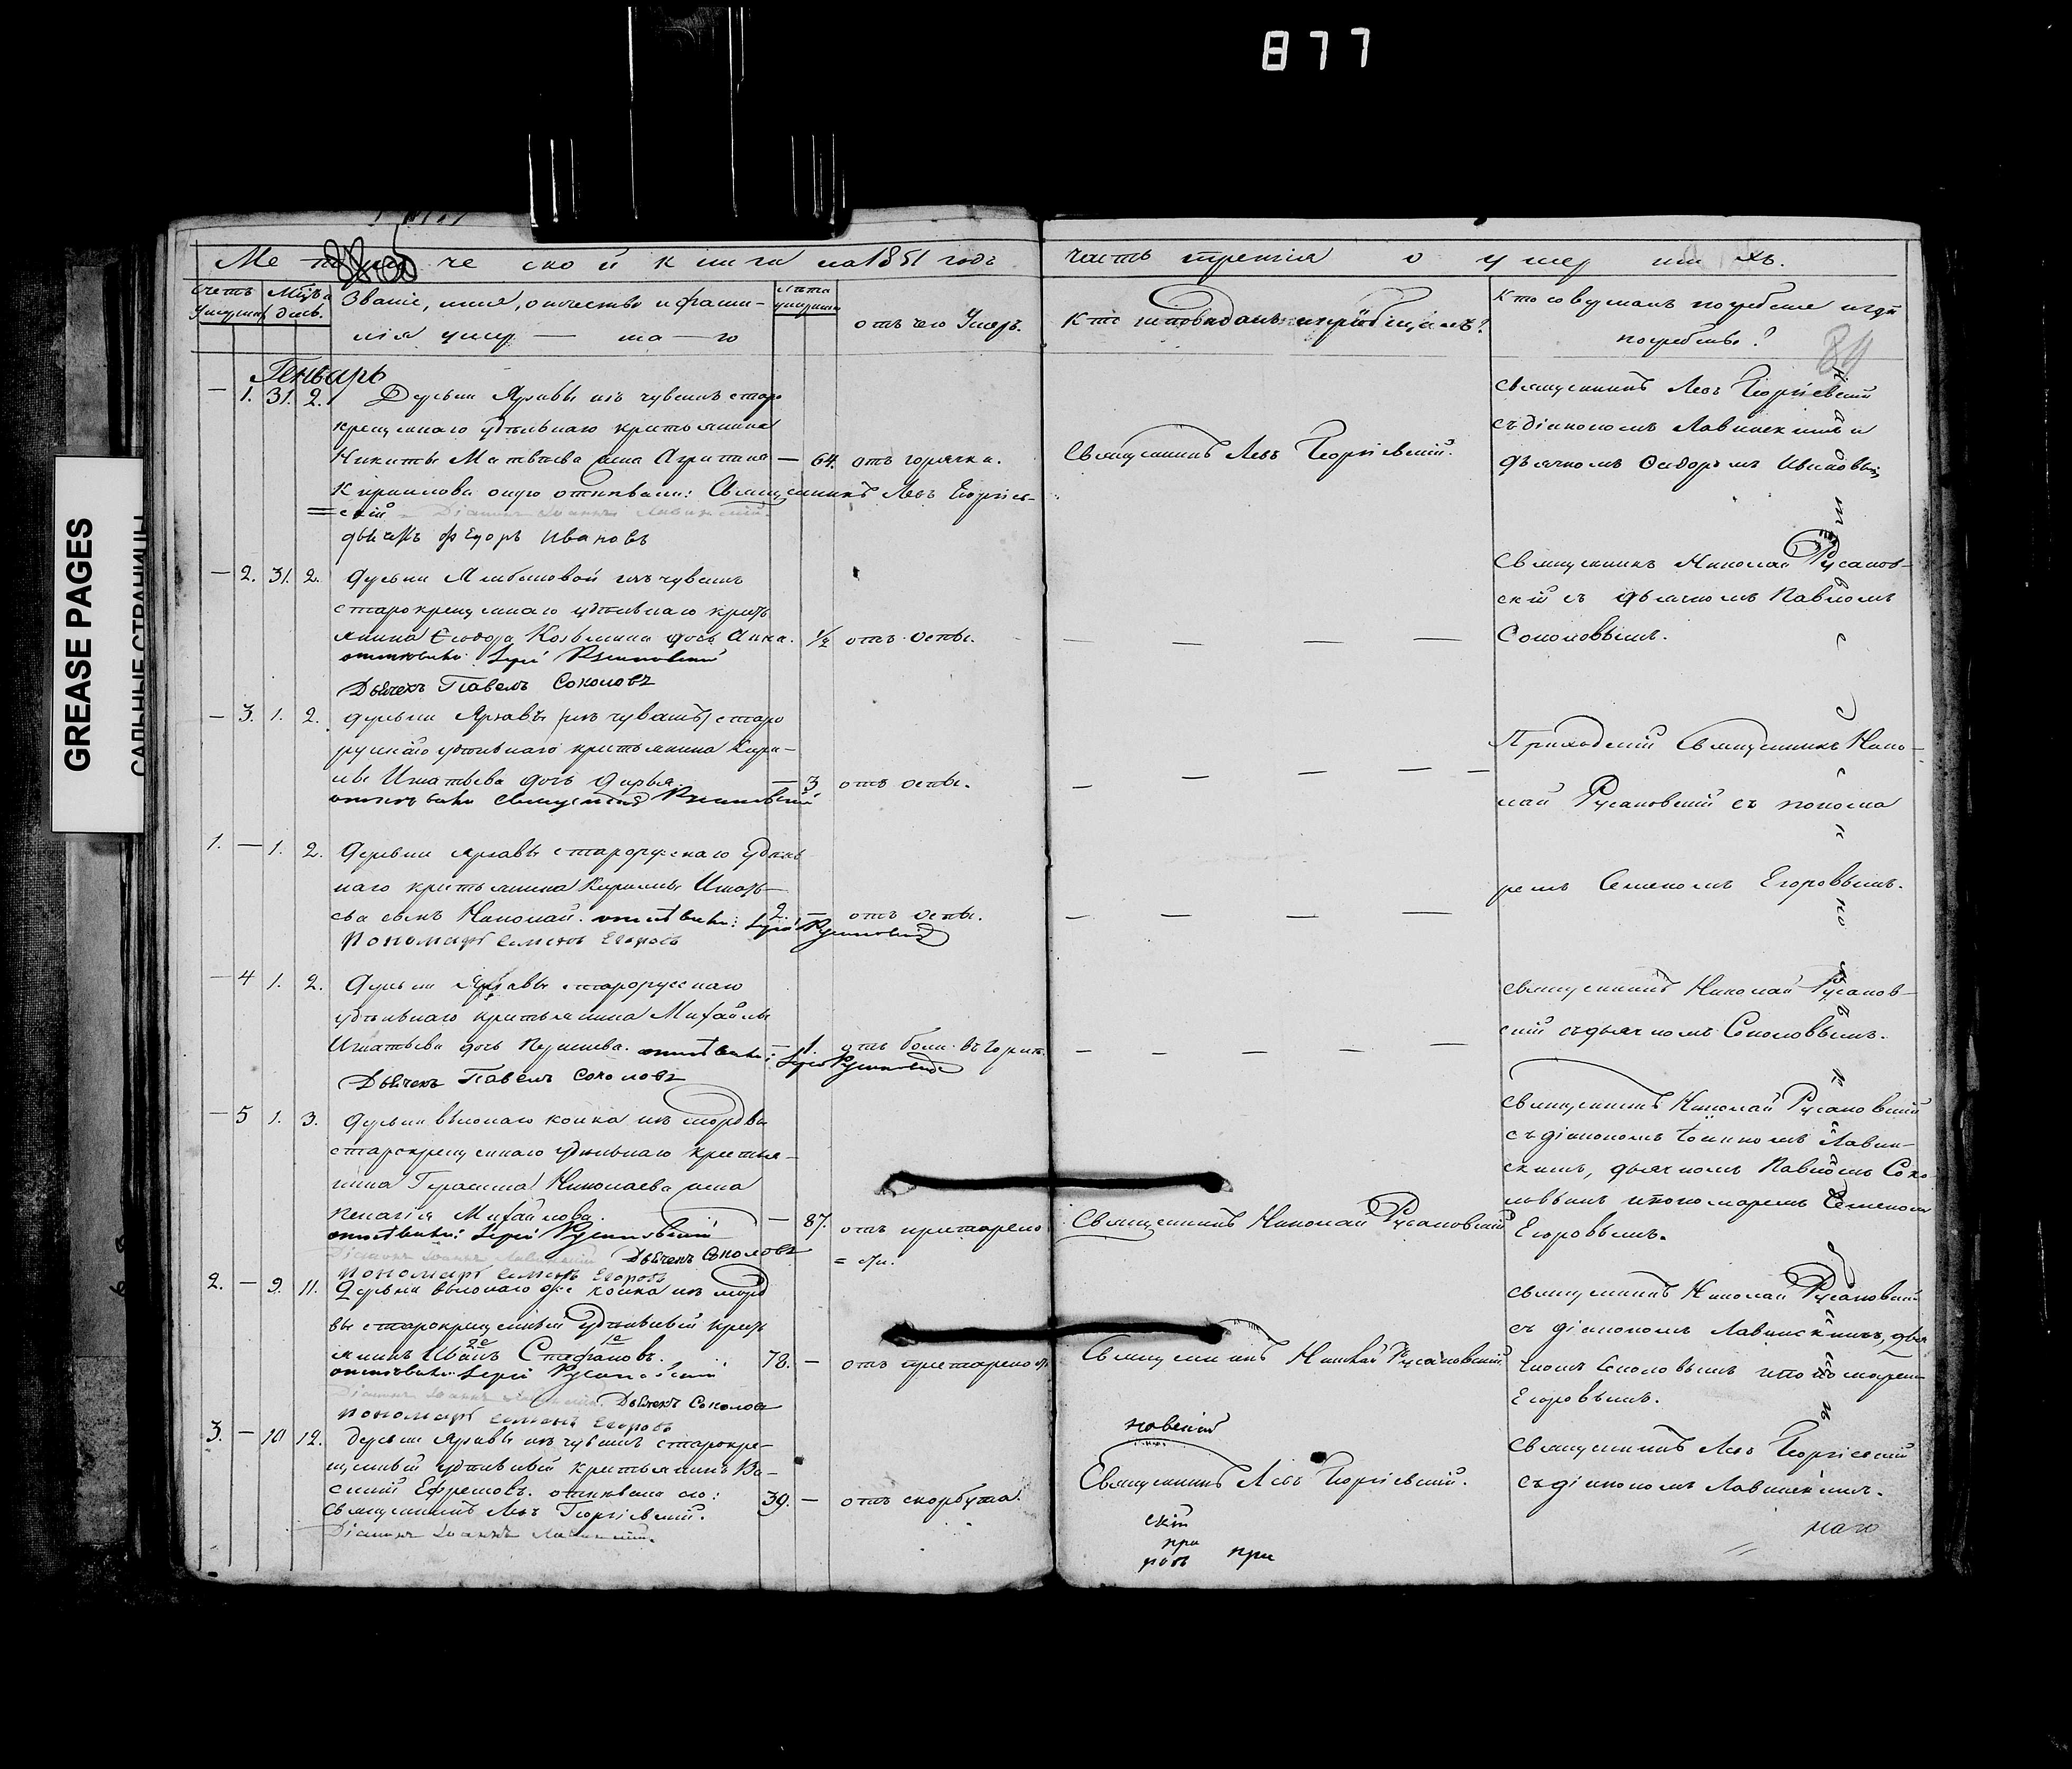 877
GREASE PAGES
САЛЬНЫЕ СТРАНИЦЫ
Метрической книги на 1851 годъ
часть третія о умершихъ.
Счетъ умершихъ
Мцъ и день.
Званіе, имя, отчество и фами-
лія умер — ша — го
лѣта умершаго
отъ чего умеръ.
Кто исповѣдалъ и пріобщалъ?
Кто совершалъ погребеніе и гдѣ
погребены?
84
Генварь
— 1. 31. 2. Деревни Яргавы изъ чувашъ старо
крещеннаго удѣльнаго крестьянина
Никиты Матвѣева жена Агрипина — 64. отъ горячки.
Кирилова оную отпѣвали: Священникъ Левъ Георгіев-
=скій Діаконъ Іоаннъ Лавинскій.
дьячекъ Федоръ Ивановъ
Священникъ Левъ Георгіевскій.
Священникъ Левъ Георгіевскій
съ діакономъ Лавинскимъ и
дьячкомъ Федоромъ Ивановымъ
— 2. 31. 2. деревни изъ чувашъ
старокрещеннаго удѣльнаго кресть
янина Ѳеодора Козьмина дочь Анна. 1/2 отъ оспы.
отпѣвали: Іерей Русановскій
Дьячекъ Павелъ Соколовъ
Священникъ Николай Русанов-
скій съ дьячкомъ Павломъ
Соколовымъ.
— 3. 1. 2. деревни Яргавы (изъ чувашъ) старо
русскаго удѣльнаго крестьянина Кири-
лы Игнатьева дочь Дарья — 3 отъ оспы.
отпѣвали Священникъ Русановскій
Приходскій Священникъ Нико-
лай Русановскій съ понома
ремъ Семеномъ Егоровымъ.
1. — 1. 2. Деревни Яргавы старорусскаго удѣль
наго крестьянина Кирилы Игнать-
ева сынъ Николай. отпѣвали: Іерей Русановскій 2. — отъ оспы.
Пономарь Семенъ Егоровъ
— 4 1. 2. Деревни Яргавы старорусскаго
удѣльнаго крестьянина Михайлы
Игнатьева дочь отпѣвали: Іерей Русановскій — 1. отъ боли въ горлѣ.
Дьячекъ Павелъ Соколовъ
Священникъ Николай Русанов-
скій съ дьячкомъ Соколовымъ.
— 5 1. 3. Деревни Вѣлонаго колка изъ мордвы
старокрещеннаго удѣльнаго крестья-
нина Герасима Николаева жена
Пелагія Михайлова. — 87. отъ престарело
=сти.
отпѣвали: Іерей Русановскій
Діаконъ Іоаннъ Лавинскій Дьячекъ Соколовъ
Пономарь Семенъ Егоровъ
Священникъ Николай Русановскій
Священникъ Николай Русановскій
съ діакономъ Іоанномъ Лавин-
скимъ, дьячкомъ Павломъ Соко
ловымъ и пономаремъ Семеномъ
Егоровымъ.
2. — 9. 11. Деревни Вѣлонаго же колка изъ морд
вы старокрещенный удѣльный кресть
янинъ Иванъ Стефановъ. 78. — отъ престарелос.
отпѣвали: Іерей Русановскій
Діаконъ Іоаннъ Лавинскій Дьячекъ Соколовъ
Пономарь Семенъ Егоровъ
Священникъ Николай Русановскій
Священникъ Николай Русановскій
съ діакономъ Лавинскимъ, дья
чкомъ Соколовымъ и пономаремъ
Егоровымъ.
3. — 10 12. Деревни Яргавы изъ чувашъ старокре-
щенный удѣльный крестьянинъ Ва-
силій Ефремовъ. отпѣвали его: 39. — отъ скорбута.
Священникъ Левъ Георгіевскій.
Діаконъ Іоаннъ Лавинскій.
новскій
Священникъ Левъ Георгіевскій.
скій
при
ровъ при
Священникъ Левъ Георгіевскій
съ діакономъ Лавинскимъ.
наго